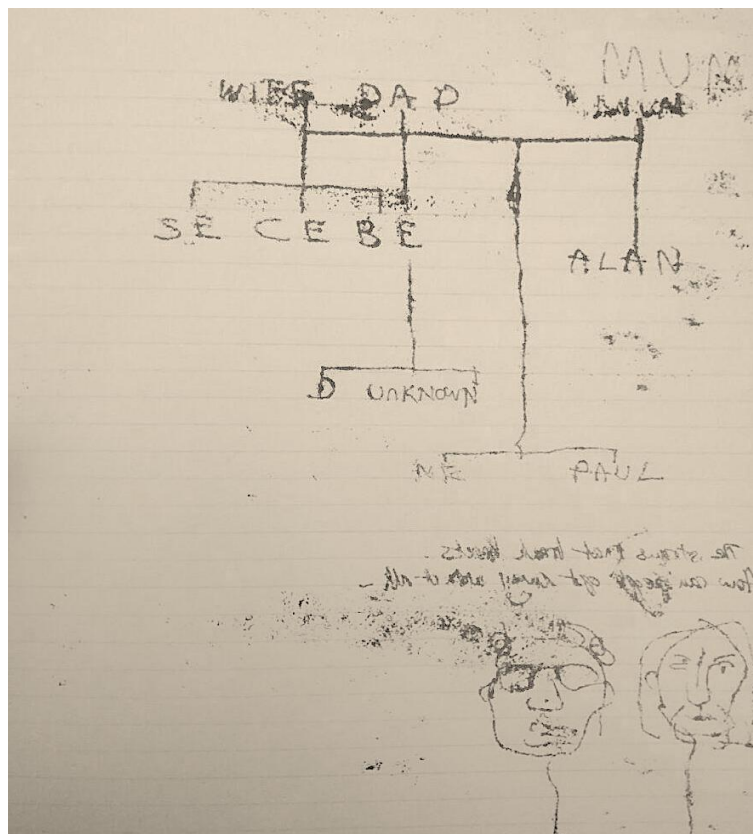 MUM
WIFE DAD MUM
SE CE BE
ALAN
D UNKNOWN
ME PAUL
The strains that break hearts.
How can people get away with it all -